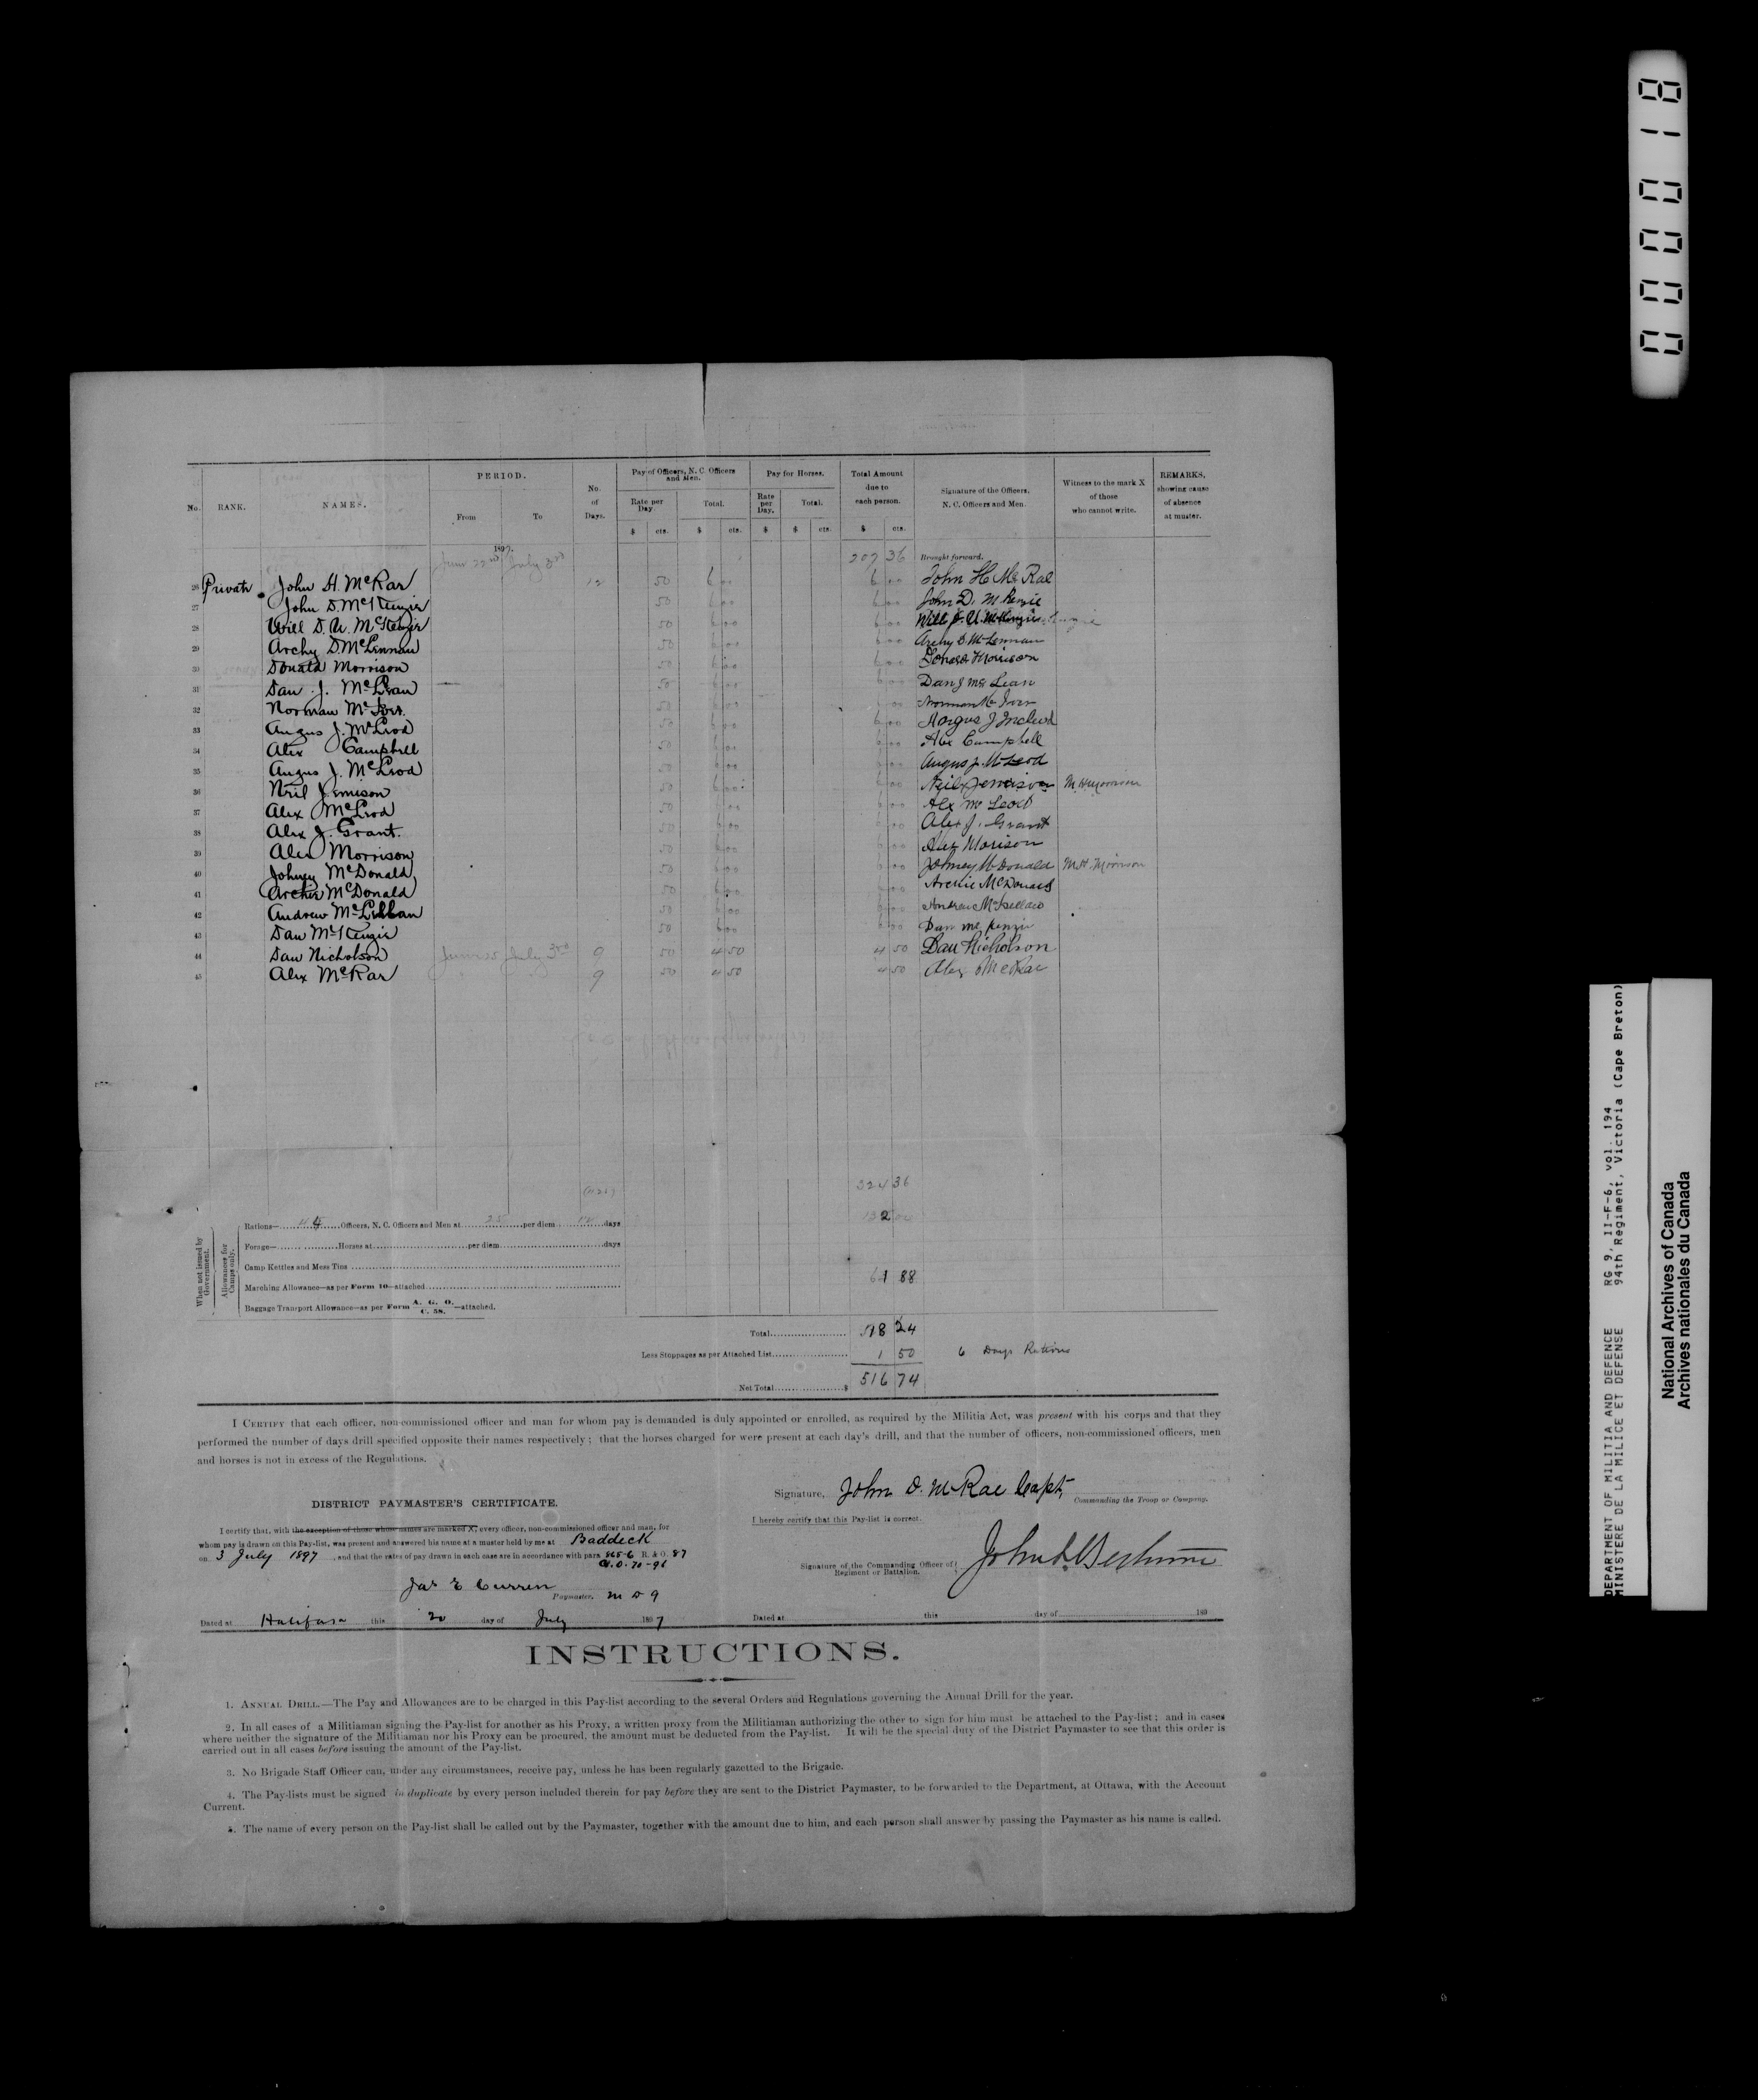 00000 18
No.
RANK.
NAMES.
PERIOD.
From
To
No. of Days.
Pay of Officers, N. C. Officers and Men.
Rate per Day.
Total.
Pay for Horses.
Rate per Day.
Total.
Total Amount due to each person.
Signature of the Officers, N. C. Officers and Men.
Witness to the mark X of those who cannot write.
REMARKS, showing cause of absence at muster.
$ cts. $ cts. $ $ cts. $ cts.
1897.
June 22nd July 3rd 207 36 Brought forward.
26 Private John H. McRae 12 50 6 00 6 00 John H McRae
27 John D. McKenzie 50 6 00 6 00 John D. McKenzie
28 Will D. U. McKenzie 50 6 00 6 00
29 Archy D. McLennan 50 6 00 6 00 Archy D McLennan
30 Donald Morrison 50 6 00 6 00 Donald Morrison
31 Dan J. McLean 50 6 00 6 00 Dan J McLean
32 Norman McIver 50 6 00 6 00 Norman McIver
33 Angus J. McLeod 50 6 00 6 00 Angus J McLeod
34 Alex Campbell 50 6 00 6 00 Alex Campbell
35 Angus J. McLeod 50 6 00 6 00 Angus J. McLeod
36 Neil Jemison 50 6 00 6 00 Neil Jemison M. H Morrison
37 Alex McLeod 50 6 00 6 00 Alex McLeod
38 Alex J. Grant. 50 6 00 6 00 Alex J. Grant
39 Alex Morrison 50 6 00 6 00 Alex Morison
40 Johney McDonald 50 6 00 6 00 Johney McDonald M. H. Morrison
41 Archie McDonald 50 6 00 6 00 Archie McDonald
42 Andrew McLellan 50 6 00 6 00 Andrew McLellan
43 Dan McKenzie 50 6 00 6 00 Dan McKenzie
44 Dan Nicholson June 25 July 3rd 9 50 4 50 4 50 Dan Nicholson
45 Alex McRae 9 50 4 50 4 50 Alex McRae
324 36
When not issued by Government.
Allowances for Camps only.
Rations— 44 Officers, N. C. Officers and Men at 25 per diem 12 days 132 00
Forage— Horses at per diem days
Camp Kettles and Mess Tins
Marching Allowance—as per Form 10—attached 61 88
Baggage Transport Allowance—as per Form A. G. O. C. 58.—attached.
Total 518 24
Less Stoppages as per Attached List 1 50 6 Days Rations
Net Total $ 516 74
I CERTIFY that each officer, non-commissioned officer and man for whom pay is demanded is duly appointed or enrolled, as required by the Militia Act, was present with his corps and that they
performed the number of days drill specified opposite their names respectively; that the horses charged for were present at each day's drill, and that the number of officers, non-commissioned officers, men
and horses is not in excess of the Regulations.
Signature, John D. McRae Capt,
Commanding the Troop or Company.
DISTRICT PAYMASTER'S CERTIFICATE.
I hereby certify that this Pay-list is correct.
I certify that, with the exception of those whose names are marked X, every officer, non-commissioned officer and man, for
whom pay is drawn on this Pay-list, was present and answered his name at a muster held by me at Baddeck
on 3 July 1897, and that the rates of pay drawn in each case are in accordance with para 865-6 R. & O. 87
G.O. 70-96
Signature of the Commanding Officer of Regiment or Battalion. John L Bethune
Jas E Curren
Paymaster. M D 9
Dated at Halifax this 20 day of July 1897
Dated at this day of 189
INSTRUCTIONS.
1. ANNUAL DRILL.—The Pay and Allowances are to be charged in this Pay-list according to the several Orders and Regulations governing the Annual Drill for the year.
2. In all cases of a Militiaman signing the Pay-list for another as his Proxy, a written proxy from the Militiaman authorizing the other to sign for him must be attached to the Pay-list; and in cases
where neither the signature of the Militiaman nor his Proxy can be procured, the amount must be deducted from the Pay-list. It will be the special duty of the District Paymaster to see that this order is
carried out in all cases before issuing the amount of the Pay-list.
3. No Brigade Staff Officer can, under any circumstances, receive pay, unless he has been regularly gazetted to the Brigade.
4. The Pay-lists must be signed in duplicate by every person included therein for pay before they are sent to the District Paymaster, to be forwarded to the Department, at Ottawa, with the Account
Current.
5. The name of every person on the Pay-list shall be called out by the Paymaster, together with the amount due to him, and each person shall answer by passing the Paymaster as his name is called.
DEPARTMENT OF MILITIA AND DEFENCE RG 9, II-F-6, vol. 194
MINISTERE DE LA MILICE ET DEFENSE 94th Regiment, Victoria (Cape Breton)
National Archives of Canada
Archives nationales du Canada